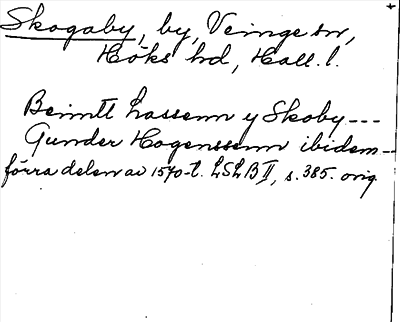 Skogaby, by, Veinge sn,
Höks hd, Hall. l.
Beintt Lassenn y Skoby---
Gunder Hogenssenn ibidem--
förra delen av 1540-t. LSLB II, s. 385. orig.